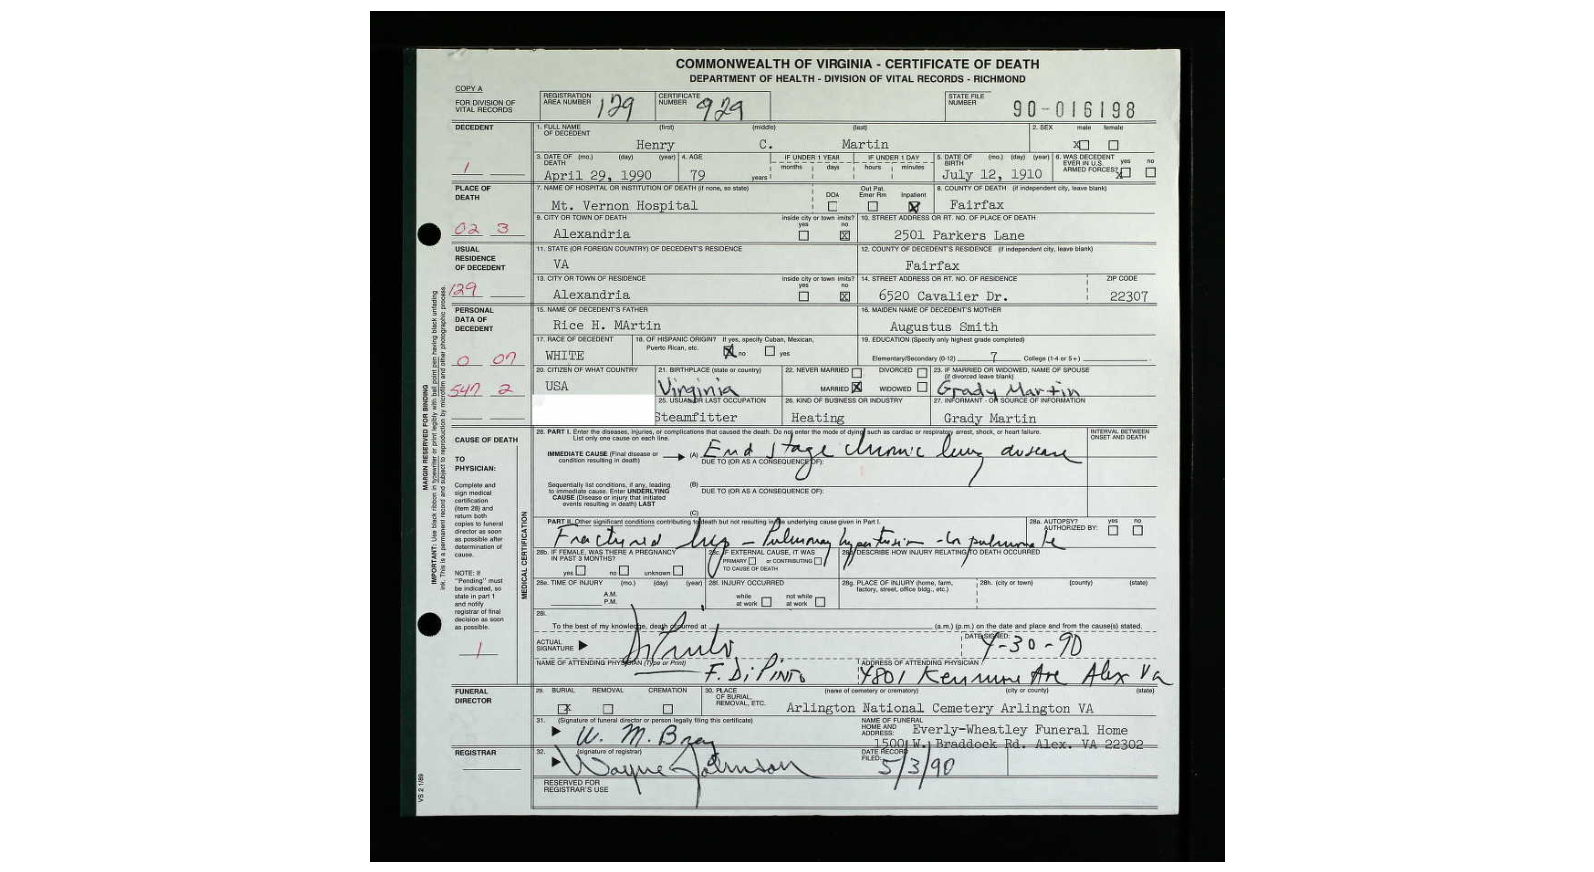 COMMONWEALTH OF VIRGINIA - CERTIFICATE OF DEATH
DEPARTMENT OF HEALTH - DIVISION OF VITAL RECORDS - RICHMOND
COPY A
FOR DIVISION OF VITAL RECORDS
REGISTRATION AREA NUMBER 129
CERTIFICATE NUMBER 929
STATE FILE NUMBER 90-016198
DECEDENT
1. FULL NAME OF DECEDENT (first) (middle) (last)
Henry C. Martin
2. SEX male female
X
3. DATE OF DEATH (mo.) (day) (year)
April 29, 1990
4. AGE
79 years
IF UNDER 1 YEAR months days
IF UNDER 1 DAY hours minutes
5. DATE OF BIRTH (mo.) (day) (year)
July 12, 1910
6. WAS DECEDENT EVER IN U.S. ARMED FORCES? yes no
X
1
PLACE OF DEATH
7. NAME OF HOSPITAL OR INSTITUTION OF DEATH (if none, so state)
Mt. Vernon Hospital
DOA Out Pat. Emer Rm Inpatient
X
8. COUNTY OF DEATH (if independent city, leave blank)
Fairfax
02 3
9. CITY OR TOWN OF DEATH
Alexandria
inside city or town limits? yes no
X
10. STREET ADDRESS OR RT. NO. OF PLACE OF DEATH
2501 Parkers Lane
USUAL RESIDENCE OF DECEDENT
11. STATE (OR FOREIGN COUNTRY) OF DECEDENT'S RESIDENCE
VA
12. COUNTY OF DECEDENT'S RESIDENCE (if independent city, leave blank)
Fairfax
129
13. CITY OR TOWN OF RESIDENCE
Alexandria
inside city or town limits? yes no
X
14. STREET ADDRESS OR RT. NO. OF RESIDENCE
6520 Cavalier Dr.
ZIP CODE
22307
PERSONAL DATA OF DECEDENT
15. NAME OF DECEDENT'S FATHER
Rice H. MArtin
16. MAIDEN NAME OF DECEDENT'S MOTHER
Augustus Smith
0 07
17. RACE OF DECEDENT
WHITE
18. OF HISPANIC ORIGIN? If yes, specify Cuban, Mexican, Puerto Rican, etc.
X no yes
19. EDUCATION (Specify only highest grade completed)
Elementary/Secondary (0-12) 7 College (1-4 or 5+)
547 2
20. CITIZEN OF WHAT COUNTRY
USA
21. BIRTHPLACE (state or country)
Virginia
22. NEVER MARRIED DIVORCED
MARRIED X WIDOWED
23. IF MARRIED OR WIDOWED, NAME OF SPOUSE (if divorced leave blank)
Grady Martin
25. USUAL OR LAST OCCUPATION
Steamfitter
26. KIND OF BUSINESS OR INDUSTRY
Heating
27. INFORMANT - OR SOURCE OF INFORMATION
Grady Martin
CAUSE OF DEATH
TO PHYSICIAN:
Complete and sign medical certification (item 28) and return both copies to funeral director as soon as possible after determination of cause.
NOTE: If "Pending" must be indicated, so state in part 1 and notify registrar of final decision as soon as possible.
1
MEDICAL CERTIFICATION
28. PART I. Enter the diseases, injuries, or complications that caused the death. Do not enter the mode of dying such as cardiac or respiratory arrest, shock, or heart failure.
List only one cause on each line.
INTERVAL BETWEEN ONSET AND DEATH
IMMEDIATE CAUSE (Final disease or condition resulting in death)
(A) End stage chronic lung disease
DUE TO (OR AS A CONSEQUENCE OF):
Sequentially list conditions, if any, leading to immediate cause. Enter UNDERLYING CAUSE (Disease or injury that initiated events resulting in death) LAST
(B)
DUE TO (OR AS A CONSEQUENCE OF):
(C)
PART II. Other significant conditions contributing to death but not resulting in the underlying cause given in Part I.
Fractured hip - Pulmonary hypertension - Cor pulmonale
28a. AUTOPSY? AUTHORIZED BY: yes no
28b. IF FEMALE, WAS THERE A PREGNANCY IN PAST 3 MONTHS?
yes no unknown
28c. IF EXTERNAL CAUSE, IT WAS
PRIMARY or CONTRIBUTING
TO CAUSE OF DEATH
28d. DESCRIBE HOW INJURY RELATING TO DEATH OCCURRED
28e. TIME OF INJURY (mo.) (day) (year)
A.M.
P.M.
28f. INJURY OCCURRED
while at work not while at work
28g. PLACE OF INJURY (home, farm, factory, street, office bldg., etc.)
28h. (city or town) (county) (state)
28i.
To the best of my knowledge, death occurred at (a.m.) (p.m.) on the date and place and from the cause(s) stated.
ACTUAL SIGNATURE
DiPinto
DATE SIGNED:
4-30-90
NAME OF ATTENDING PHYSICIAN (Type or Print)
F. DiPinto
ADDRESS OF ATTENDING PHYSICIAN
4801 Kenmore Ave Alex Va
FUNERAL DIRECTOR
29. BURIAL REMOVAL CREMATION
X
30. PLACE OF BURIAL, REMOVAL, ETC. (name of cemetery or crematory) (city or county) (state)
Arlington National Cemetery Arlington VA
31. (Signature of funeral director or person legally filing this certificate)
W. M. Bray
NAME OF FUNERAL HOME AND ADDRESS:
Everly-Wheatley Funeral Home
1500 W. Braddock Rd. Alex. VA 22302
REGISTRAR
32. (signature of registrar)
Wayne Johnson
DATE RECORD FILED:
5/3/90
RESERVED FOR REGISTRAR'S USE
MARGIN RESERVED FOR BINDING
IMPORTANT: Use black ribbon in typewriter or print legibly with ball point pen having black unfading ink. This is a permanent record and subject to reproduction by microfilm and other photographic process.
VS 2 1/89